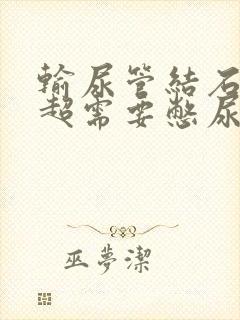 輸尿管結石
超需要憋尿
巫夢潔